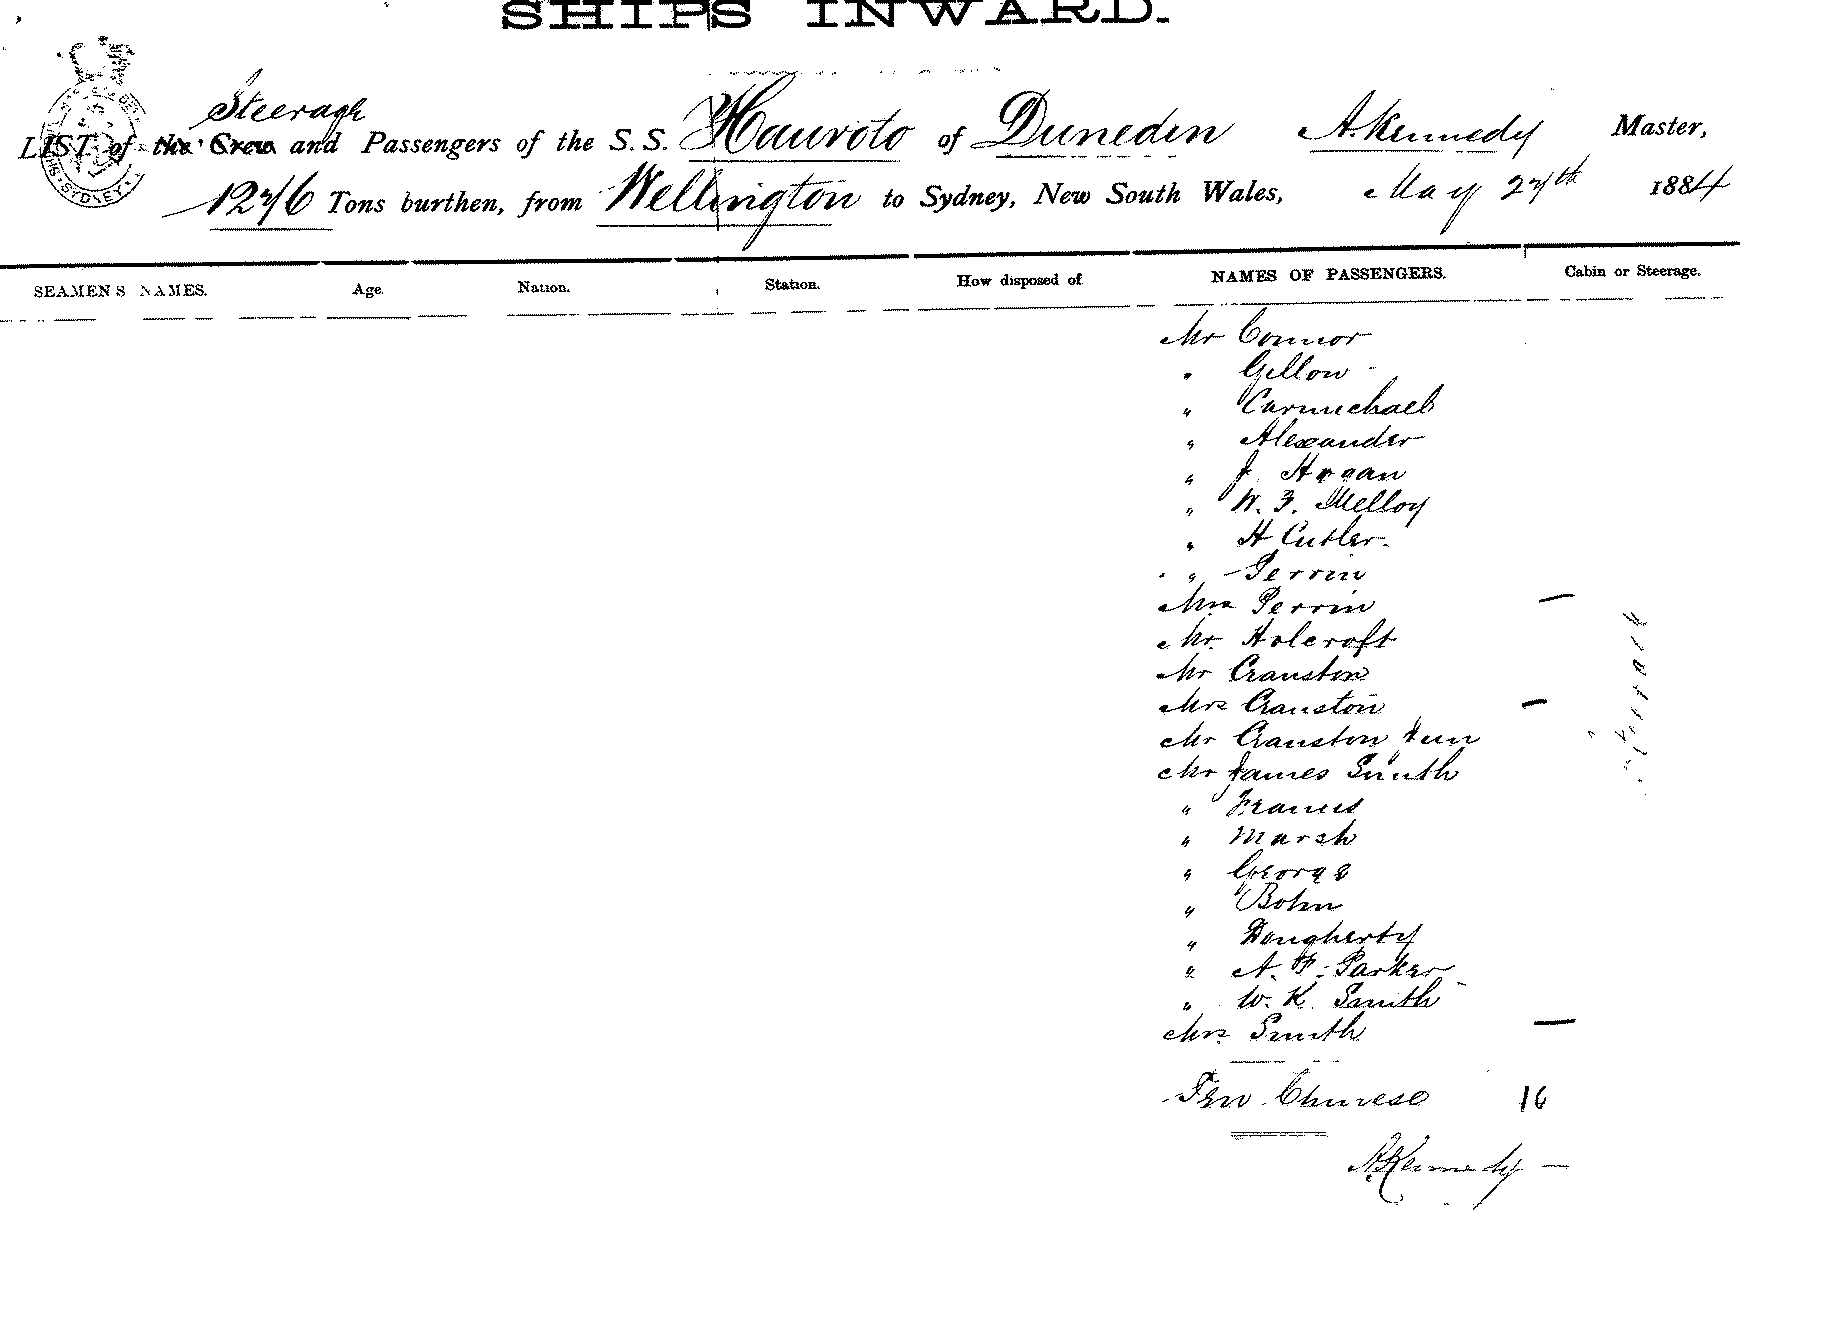 SHIPS INWARD.
Steerage
LIST of the Crew and Passengers of the S. S. Hauroto of Dunedin A. Kennedy Master,
1276 Tons burthen, from Wellington to Sydney, New South Wales, May 27th 1884
SEAMEN'S NAMES. Age. Nation. Station. How disposed of NAMES OF PASSENGERS. Cabin or Steerage.
Mr Connor
" Gillon
" Carmichael
" Alexander
" J. Hogan
" W. F. Melloy
" H Cutler
" Perrin
Mrs Perrin —
Mr Holcroft
Mr Cranston
Mrs Cranston —
Mr Cranston Jun
Mr James Smith
" Francis
" Marsh
" George
" Bohn
" Dougherty
" A. F. Parker
" W. K. Smith
Mrs Smith —
Steerage
Ten Chinese 10
A Kennedy —